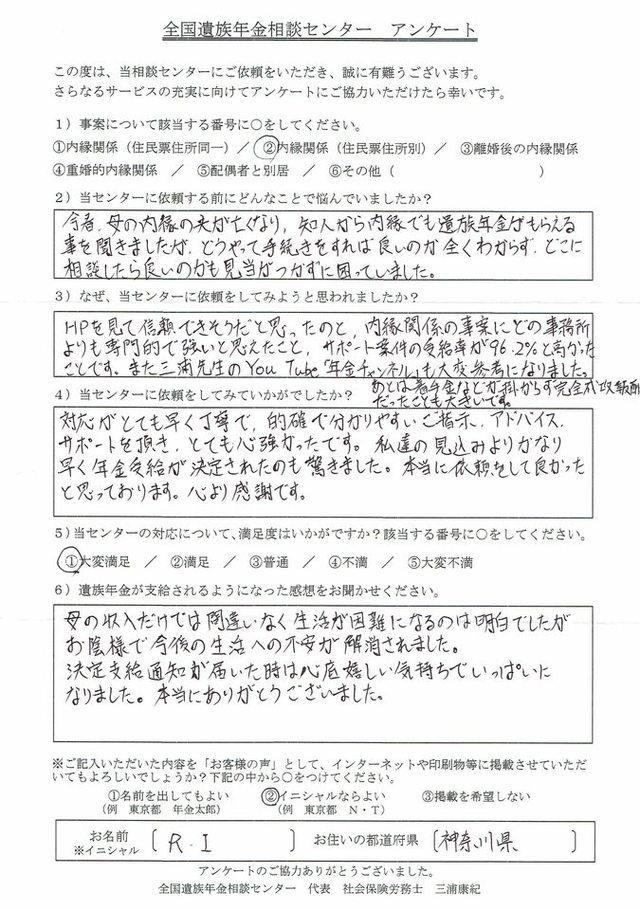 全国遺族年金相談センター　アンケート
この度は、当相談センターにご依頼をいただき、誠に有難うございます。
さらなるサービスの充実に向けてアンケートにご協力いただけたら幸いです。
1）事案について該当する番号に○をしてください。
①内縁関係（住民票住所同一）／　②内縁関係（住民票住所別）／　③離婚後の内縁関係
④重婚的内縁関係　／　⑤配偶者と別居　／　⑥その他（　　　　　　　　　）
2）当センターに依頼する前にどんなことで悩んでいましたか？
今春、母の内縁の夫が亡くなり、知人から内縁でも遺族年金がもらえる
事を聞きましたが、どうやって手続きをすれば良いのか全くわからず、どこに
相談したら良いのかも見当がつかずに困っていました。
3）なぜ、当センターに依頼をしてみようと思われましたか？
HPを見て信頼できそうだと思ったのと、内縁関係の事案にどの事務所
よりも専門的で強いと思えたこと、サポート案件の受給率が96.2%と高かった
ことです。また三浦先生のYou Tube「年金チャンネル」も大変参考になりました。
あとは着手金などが掛からず完全成功報酬
だったことも大きいです。
4）当センターに依頼をしてみていかがでしたか？
対応がとても早く丁寧で、的確で分かりやすいご指示、アドバイス、
サポートを頂き、とても心強かったです。私達の見込みよりかなり
早く年金受給が決定されたのも驚きました。本当に依頼をして良かった
と思っております。心より感謝です。
5）当センターの対応について、満足度はいかがですか？該当する番号に○をしてください。
①大変満足　／　②満足　／　③普通　／　④不満　／　⑤大変不満
6）遺族年金が支給されるようになった感想をお聞かせください。
母の収入だけでは間違いなく生活が困難になるのは明白でしたが
お陰様で今後の生活への不安が解消されました。
決定支給通知が届いた時は心底嬉しい気持ちでいっぱいに
なりました。本当にありがとうございました。
※ご記入いただいた内容を「お客様の声」として、インターネットや印刷物等に掲載させていただ
いてもよろしいでしょうか？下記の中から○をつけてください。
①名前を出してもよい　②イニシャルならよい　③掲載を希望しない
（例　東京都　年金太郎）　（例　東京都　N・T）
お名前
※イニシャル　〔 R.I 〕　お住いの都道府県　〔神奈川県〕
アンケートのご協力ありがとうございました。
全国遺族年金相談センター　代表　社会保険労務士　三浦康紀